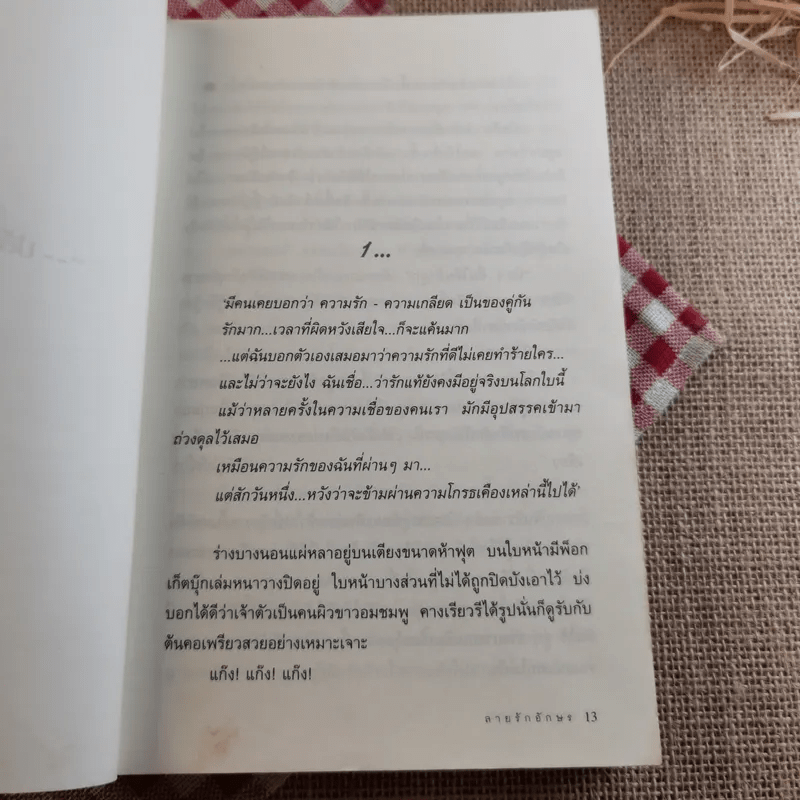 1...
'มีคนเคยบอกว่า ความรัก - ความเกลียด เป็นของคู่กัน
รักมาก...เวลาที่ผิดหวังเสียใจ...ก็จะแค้นมาก
...แต่ฉันบอกตัวเองเสมอมาว่าความรักที่ดีไม่เคยทำร้ายใคร...
และไม่ว่าจะยังไง ฉันเชื่อ...ว่ารักแท้ยังคงมีอยู่จริงบนโลกใบนี้
แม้ว่าหลายครั้งในความเชื่อของคนเรา มักมีอุปสรรคเข้ามา
ถ่วงดุลไว้เสมอ
เหมือนความรักของฉันที่ผ่านๆ มา...
แต่สักวันหนึ่ง...หวังว่าจะข้ามผ่านความโกรธเคืองเหล่านี้ไปได้'
ร่างบางนอนแผ่หลาอยู่บนเตียงขนาดห้าฟุต บนใบหน้ามีพ็อก
เก็ตบุ๊กเล่มหนาวางปิดอยู่ ใบหน้าบางส่วนที่ไม่ได้ถูกปิดบังเอาไว้ บ่ง
บอกได้ดีว่าเจ้าตัวเป็นคนผิวขาวอมชมพู คางเรียวรีได้รูปนั่นก็ดูรับกับ
ต้นคอเพรียวสวยอย่างเหมาะเจาะ
แก๊ง! แก๊ง! แก๊ง!
ลายรักอักษร 13